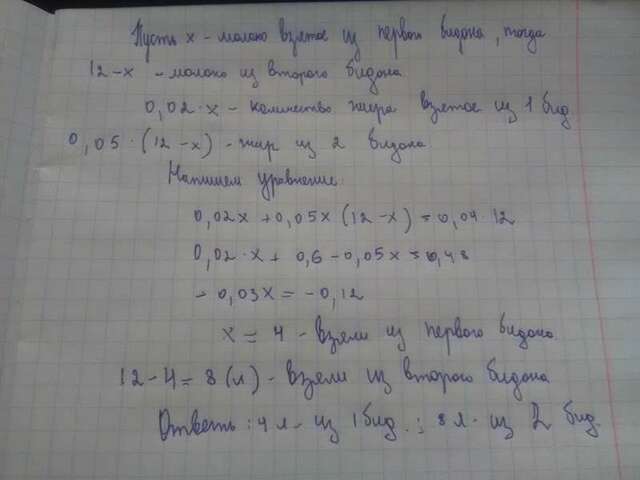 Пусть x - молоко взятое из первого бидона, тогда
12-x - молоко из второго бидона
0,02·x - количество жира взятое из 1 бид
0,05·(12-x) - жир из 2 бидона
Напишем уравнение:
0,02x + 0,05x(12-x) = 0,04·12
0,02·x + 0,6 - 0,05x = 0,48
- 0,03x = - 0,12
x = 4 - взяли из первого бидона
12-4 = 8 (л) - взяли из второго бидона
Ответь: 4 л - из 1 бид.; 8 л. из 2 бид.